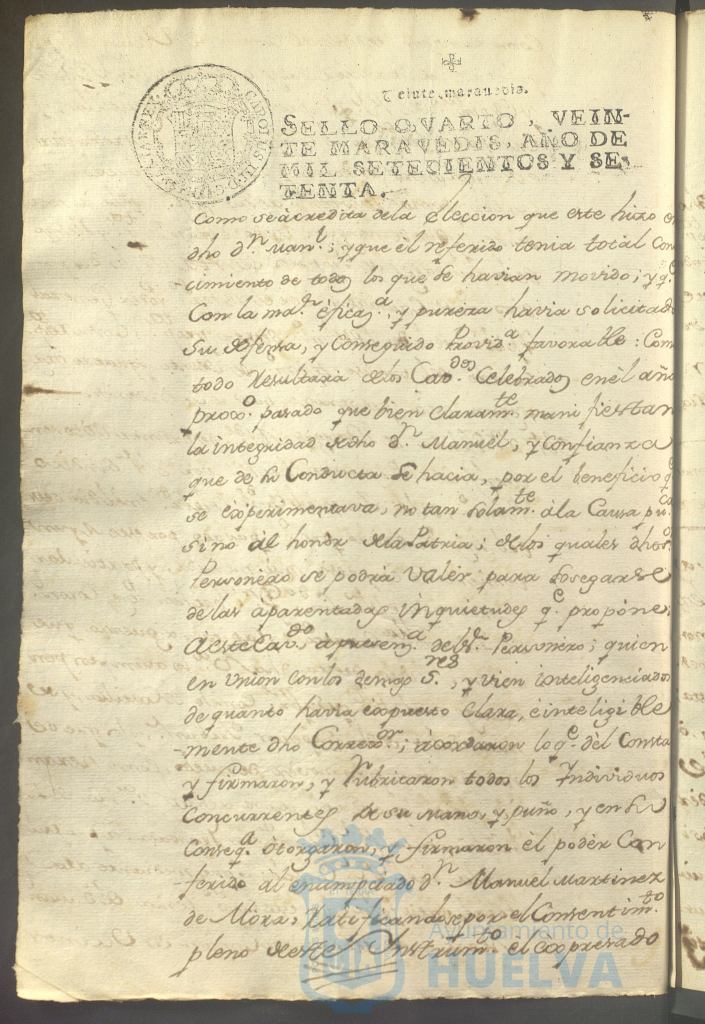 Veinte maravedis.
SELLO QVARTO, VEIN-
TE MARAVEDIS, AÑO DE
MIL SETECIENTOS Y SE-
TENTA.
CAROLUS III D G HISPANIAR REX
Como se àcredita dela Eleccion que este hizo en
dho Dn. Manl.; y que èl referido tenia total Cono
-cimiento de todos los que se havian movido; y q.e
Con la maor. èficaa., y pureza havia solicitado
Su defensa, y Conseguido Provid.a favorable: Como
todo Resultarà delos Cav.dos Celebrados enèl año
procso. pasado que bien claram.te manifiestan
la integridad dedho Dn. Manuel, y Confianza
que de su Conducta se hacia, por el beneficio q.e
se experimentava, no tan solam.te àla Causa pu.ca
sino àl honor dela Patria; delos quales dhos.
Personero se podrà valer para Sosegarse
delas àparentadas inquietudes q.e propone
àeste Cav.do à presen.a del Sr. Personero; quien
en Union con los demas S.res, y vien inteligenciados
de quanto havia expuesto Clara, èinteligible
-mente dho Correxor.; àcordaron lo q.e dèl Consta
y firmaron, y Rubricaron todos los Individuos
Concurrentes de su mano, y puño, y en su
Conseq.a òtorgaron, y firmaron èl podèr Con
-ferido àl enumpciado Dn. Manuel Martinez
de Mora, Ratificandose por el Consentim.to
pleno deeste Instrum.to el expresado
Ayuntamiento de
HUELVA